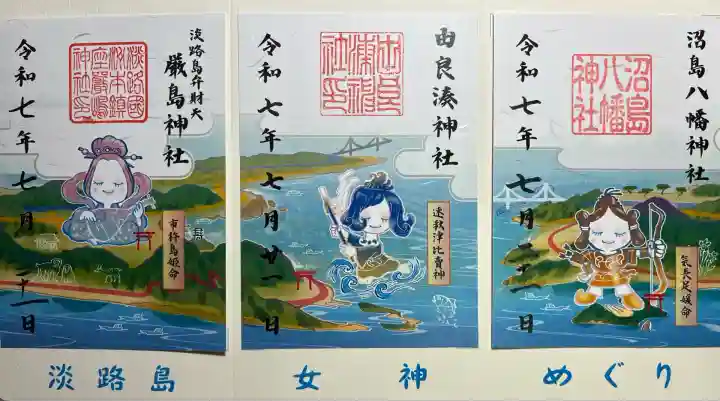 淡路島弁財天
厳島神社
令和七年七月二十一日
淡路國
洲本鎮
座嚴嶋
神社印
市杵島姫命
由良湊神社
令和七年七月廿一日
由良
湊神
社印
速秋津比賣神
沼島八幡神社
令和七年七月二十一日
沼島
八幡
神社
気長足媛命
淡路島 女神 めぐり